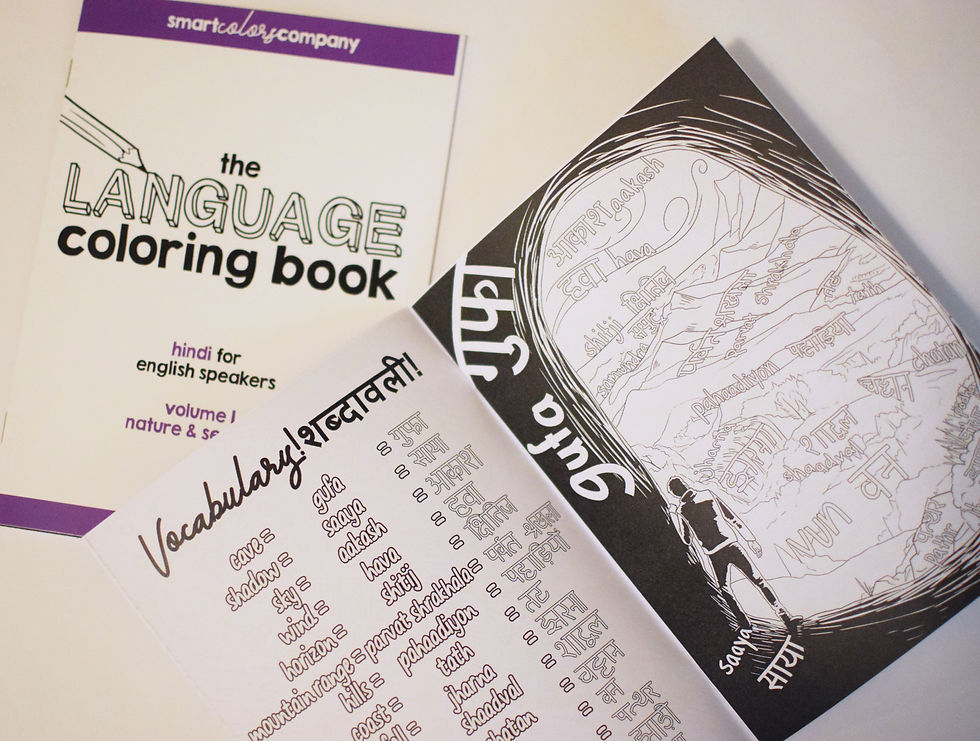 smartcolorscompany
the
LANGUAGE
coloring book
hindi for
english speakers
volume I
nature & se
Vocabulary! शब्दावली!
cave = gufa = गुफा
shadow = saaya = साया
sky = aakash = आकाश
wind = hava = हवा
horizon = shitij = क्षितिज
mountain range = parvat shrakhala = पर्वत श्रृंखला
hills = pahaadiyon = पहाड़ियों
coast = tath = तट
jharna = झरना
shaadval = शाद्वल
hatan = चट्टान
वन
पत्थर
झाड़ी
गुफा
gufa
आकाश aakash
हवा hava
shitij क्षितिज
samundra
पर्वत श्रृंखला
parvat shrakhala
तट
tath
pahaadiyon पहाड़ियों
चट्टान
jharna
झरना
shaadval शाद्वल
वन
van
पत्थर
saaya
साया